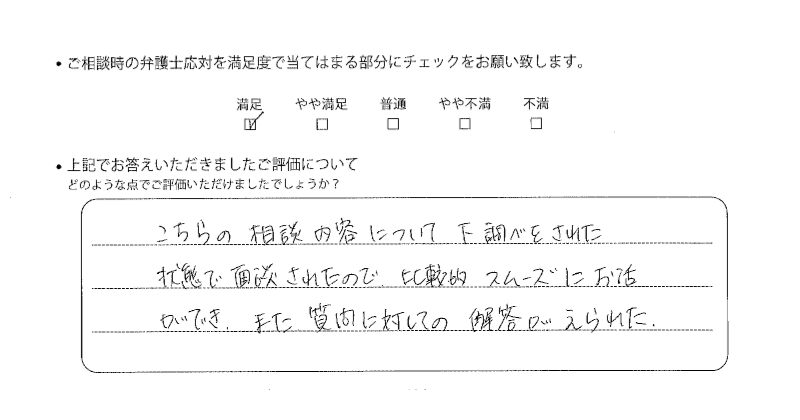 • ご相談時の弁護士応対を満足度で当てはまる部分にチェックをお願い致します。
満足 やや満足 普通 やや不満 不満
• 上記でお答えいただきましたご評価について
どのような点でご評価いただけましたでしょうか？
こちらの相談内容について下調べをされた
状態で面談されたので、比較的スムーズにお話
ができ、また質問に対しての解答がえられた。